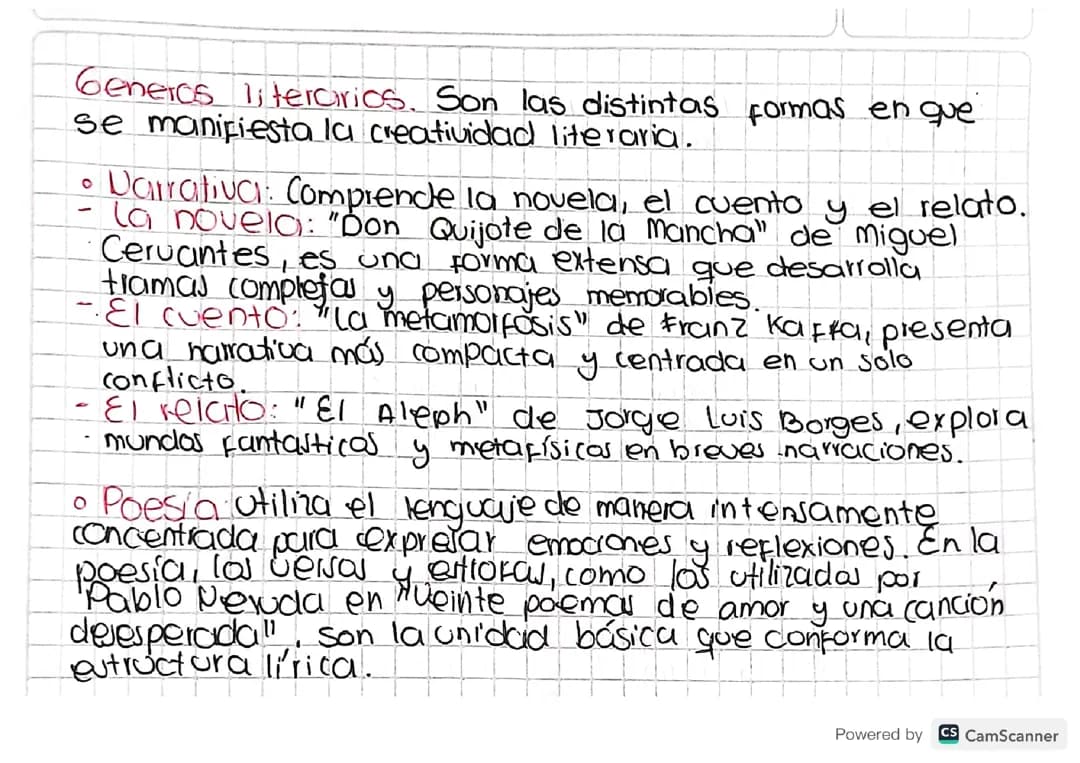 Generos literarios. Son las distintas formas en que
se manifiesta la creatividad literaria.
° Narrativa: Comprende la novela, el cuento y el relato.
- La novela: "Don Quijote de la Mancha" de Miguel
Cervantes, es una forma extensa que desarrolla
tramas complejas y personajes memorables.
- El cuento: "La metamorfosis" de Franz Kafka, presenta
una narrativa más compacta y centrada en un solo
conflicto.
- El relato: "El Aleph" de Jorge Luis Borges, explora
mundos fantasticos y metafísicos en breves narraciones.
° Poesía: Utiliza el lenguaje de manera intensamente
concentrada para expresar emociones y reflexiones. En la
poesía, los versos y estrofas, como las utilizadas por
Pablo Neruda en "Veinte poemas de amor y una canción
desesperada", son la unidad básica que conforma la
estructura lírica.
Powered by CS CamScanner